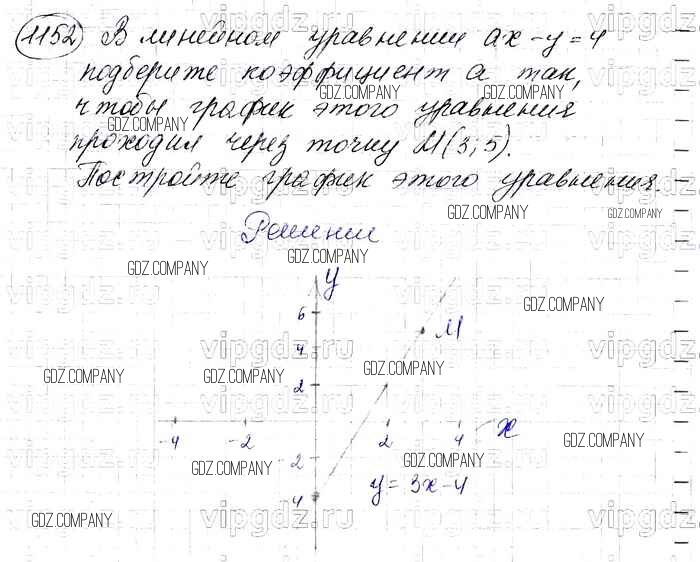 1152 В линейном уравнении ax-y=4
подберите коэффициент a так,
чтобы график этого уравнения
проходил через точку M(3;5).
Постройте график этого уравнения.
Решение
y
6
M
4
2
-4 -2 2 4 x
-2
y=3x-4
-4
vipgdz.ru
GDZ.COMPANY